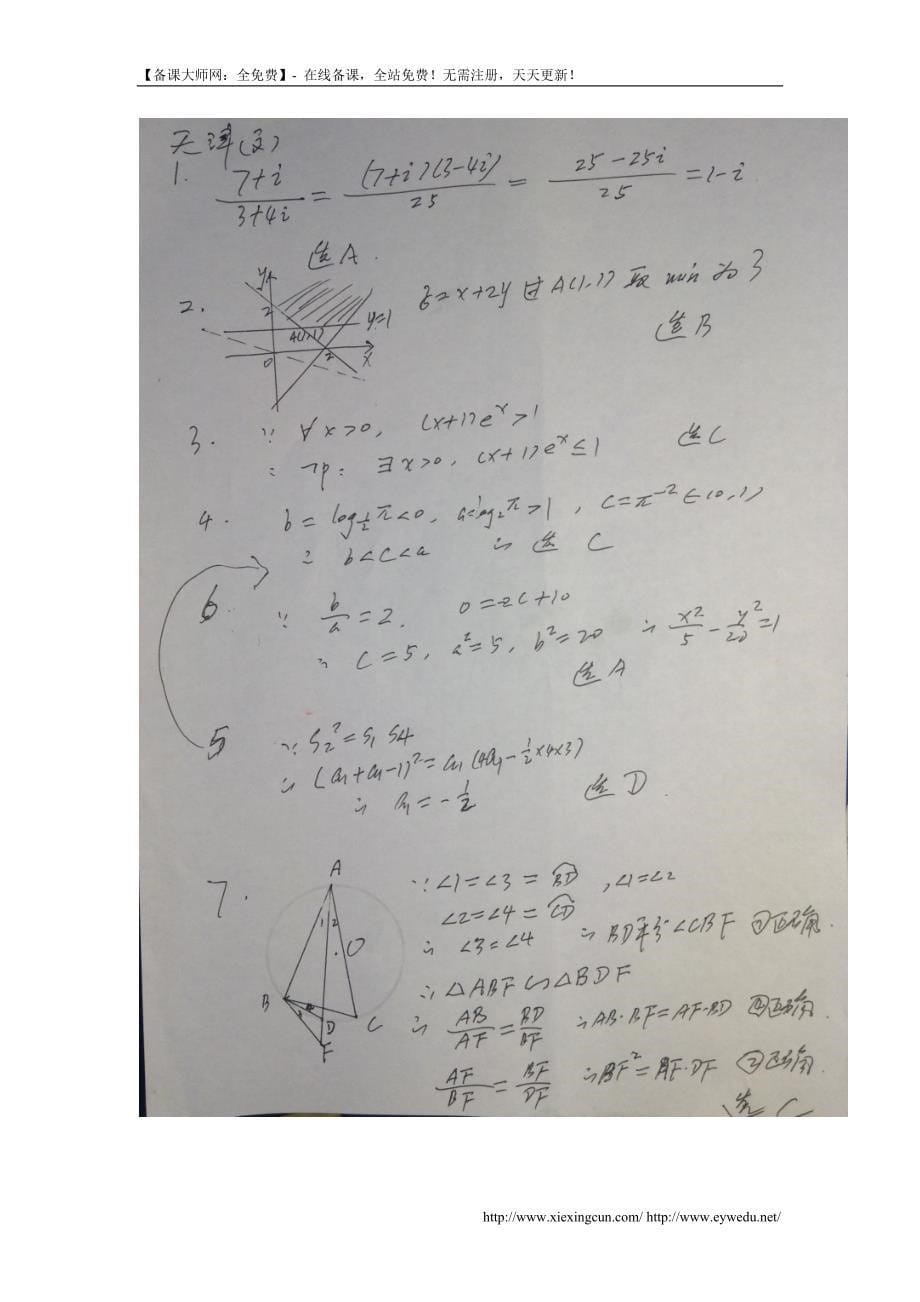 【备课大师网：全免费】- 在线备课，全站免费！无需注册，天天更新！
天津(文)
1. (7+i)/(3+4i) = (7+i)(3-4i)/25 = (25-25i)/25 = 1-i
选A.
2. y 2 A(1,1) y=1 0 2 x
z=x+2y 过 A(1,1) 取 min 为 3
选B
3. ∵ ∀x>0, (x+1)eˣ>1
∴ ¬p: ∃x>0, (x+1)eˣ≤1 选C
4. b=log_{1/2}π<0, a=log₂π>1, c=π⁻²∈(0,1)
∴ b<c<a ∴ 选 C
6 ∵ b/a=2. 0=2c+10
∴ c=5, a²=5, b²=20 ∴ x²/5-y²/20=1
选A
5 ∵ S₂²=S₁S₄
∴ (a₁+a₁-1)²=a₁(4a₁-½×4×3)
∴ a₁=-½ 选D.
7. A 1 2 O B 3 4 D C F
∵ ∠1=∠3=BD, ∠1=∠2
∠2=∠4=CD
∴ ∠3=∠4 ∴ BD平分∠CBF ①正确.
∴ △ABF∽△BDF
∴ AB/AF=BD/BF ∴AB·BF=AF·BD ④正确.
AF/BF=BF/DF ∴BF²=AF·DF ②正确.
选 C
http://www.xiexingcun.com/ http://www.eywedu.net/